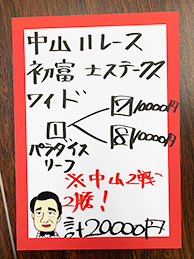 中山11レース
初富士ステークス
ワイド
7 10000円
11
8 10000円
パラダイス
リーフ
※中山2戦
2勝!
計20000円